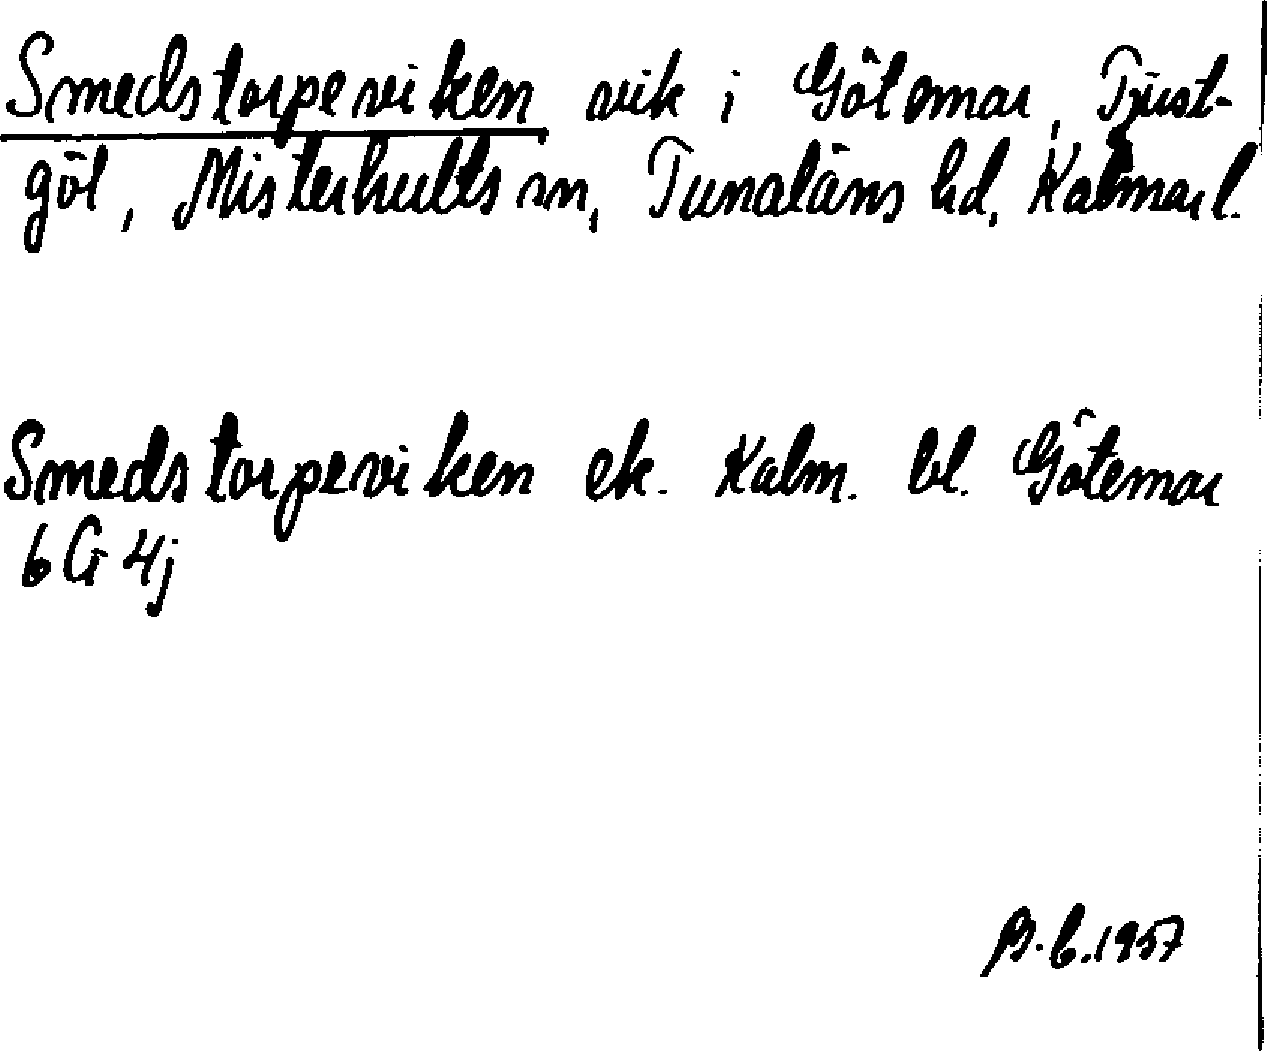 Smedstorpeviken vik i Götemar, Tjust-
göl, Misterhults sn, Tunaläns hd, Kalmar l.
Smedstorpeviken ek. Kalm. bl. Götemar
6 G 4j
B.E. 1957